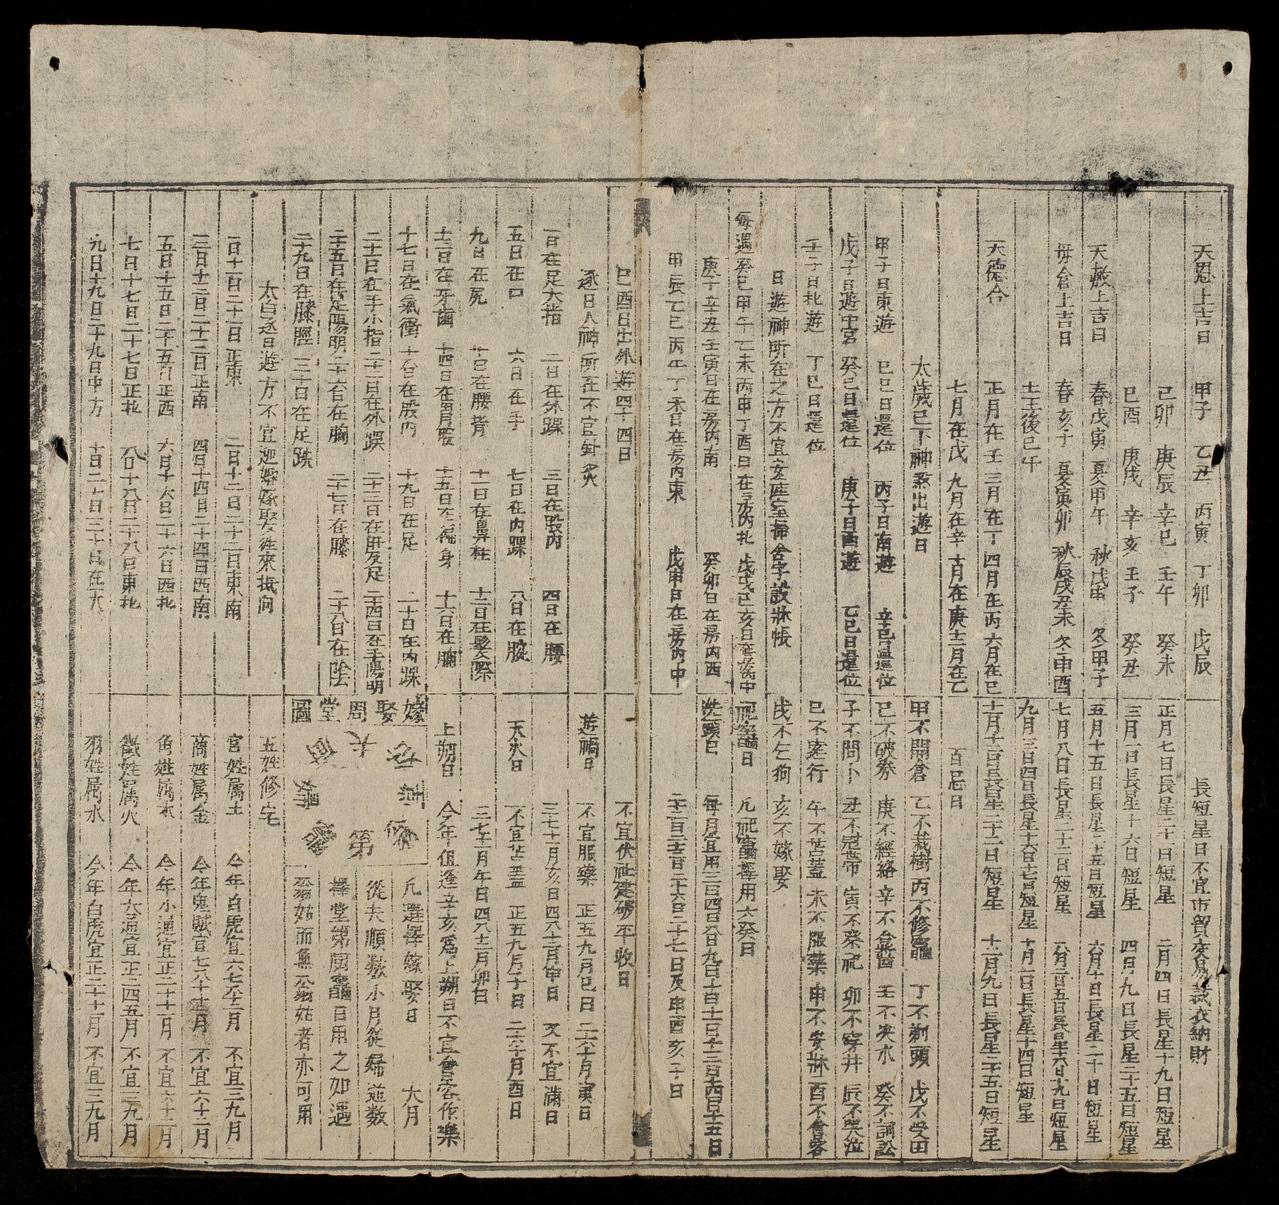 天恩上吉日　甲子　乙丑　丙寅　丁卯　戊辰
己卯　庚辰　辛巳　壬午　癸未
己酉　庚戌　辛亥　壬子　癸丑
天赦上吉日　春戊寅　夏甲午　秋戊申　冬甲子
母倉上吉日　春亥子　夏寅卯　秋辰戌丑未　冬申酉
土王後巳午
天德合　正月在壬　三月在丁　四月在丙　六月在巳
七月在戊　九月在辛　十月在庚　十二月在乙
太歲已下神煞出遊日
甲子日東遊　己巳日還位　丙子日南遊　辛巳日還位
戊子日遊中宮　癸巳日還位　庚子日西遊　乙巳日還位
壬子日北遊　丁巳日還位
日遊神所在之方不宜安産室掃舍宇設牀帳
每遇癸巳甲午乙未丙申丁酉日在房內北　戊戌己亥日在房內中
庚子辛丑壬寅日在房內南　癸卯日在房內西
甲辰乙巳丙午丁未日在房內東　戊申日在房內中
己酉日出外遊四十四日
逐日人神所在不宜針灸
一日在足大指　二日在外踝　三日在股內　四日在腰
五日在口　六日在手　七日在內踝　八日在腕
九日在尻　十日在腰背　十一日在鼻柱　十二日在髮際
十三日在牙齒　十四日在胃脘　十五日在徧身　十六日在胸
十七日在氣衝　十八日在股內　十九日在足　二十日在內踝
二十一日在手小指　二十二日在外踝　二十三日在肝及足　二十四日在手陽明
二十五日在足陽明　二十六日在胸　二十七日在膝　二十八日在陰
二十九日在膝脛　三十日在足趺
太白逐日遊方不宜迎婚嫁娶往來抵向
一日十一日二十一日正東　二日十二日二十二日東南
三日十三日二十三日正南　四日十四日二十四日西南
五日十五日二十五日正西　六日十六日二十六日西北
七日十七日二十七日正北　八日十八日二十八日東北
九日十九日二十九日中方　十日二十日三十日在天
長短星日不宜市貿交易裁衣納財
正月七日長星二十一日短星　二月四日長星十九日短星
三月一日長星十六日短星　四月九日長星二十五日短星
五月十五日長星二十五日短星　六月十日長星二十日短星
七月八日長星二十二日短星　八月二日五日長星十八日十九日短星
九月三日四日長星十六日十七日短星　十月一日長星十四日短星
十一月十二日長星二十二日短星　十二月九日長星二十五日短星
百忌日
甲不開倉　乙不栽樹　丙不修竈　丁不剃頭　戊不受田
己不破券　庚不經絡　辛不合醬　壬不決水　癸不詞訟
子不問卜　丑不冠帶　寅不祭祀　卯不穿井　辰不哭泣
巳不遠行　午不苫蓋　未不服藥　申不安牀　酉不會客
戌不乞狗　亥不嫁娶
祀竈日　凡祀竈並用六癸日
洗頭日　每月宜用三日四日八日九日十日十一日十三日十四日十五日
二十二日二十三日二十六日二十七日及申酉亥子日
不宜伏社建破平收日
遊禍日　不宜服藥　正五九月巳日　二六十月寅日
三七十一月亥日　四八十二月申日　又不宜滿日
天火日　不宜苫蓋　正五九月子日　二六十月酉日
三七十一月午日　四八十二月卯日
上朔日　今年值逢辛亥為上朔日不宜會客作樂
嫁娶周堂圖
夫　姑　堂　翁　第　竈　婦　廚
凡選擇嫁娶日　大月
從夫順數小月從婦逆數
擇堂第廚竈日用之如遇
翁姑而無翁姑者亦可用
五姓修宅
宮姓屬土　今年白虎宜六七十二月　不宜三九月
商姓屬金　今年鬼賊宜七八十一月　不宜六十二月
角姓屬木　今年小通宜正二十十一月　不宜六十二月
徵姓屬火　今年大通宜正二四五月　不宜三九月
羽姓屬水　今年白虎宜正二十十一月　不宜三九月